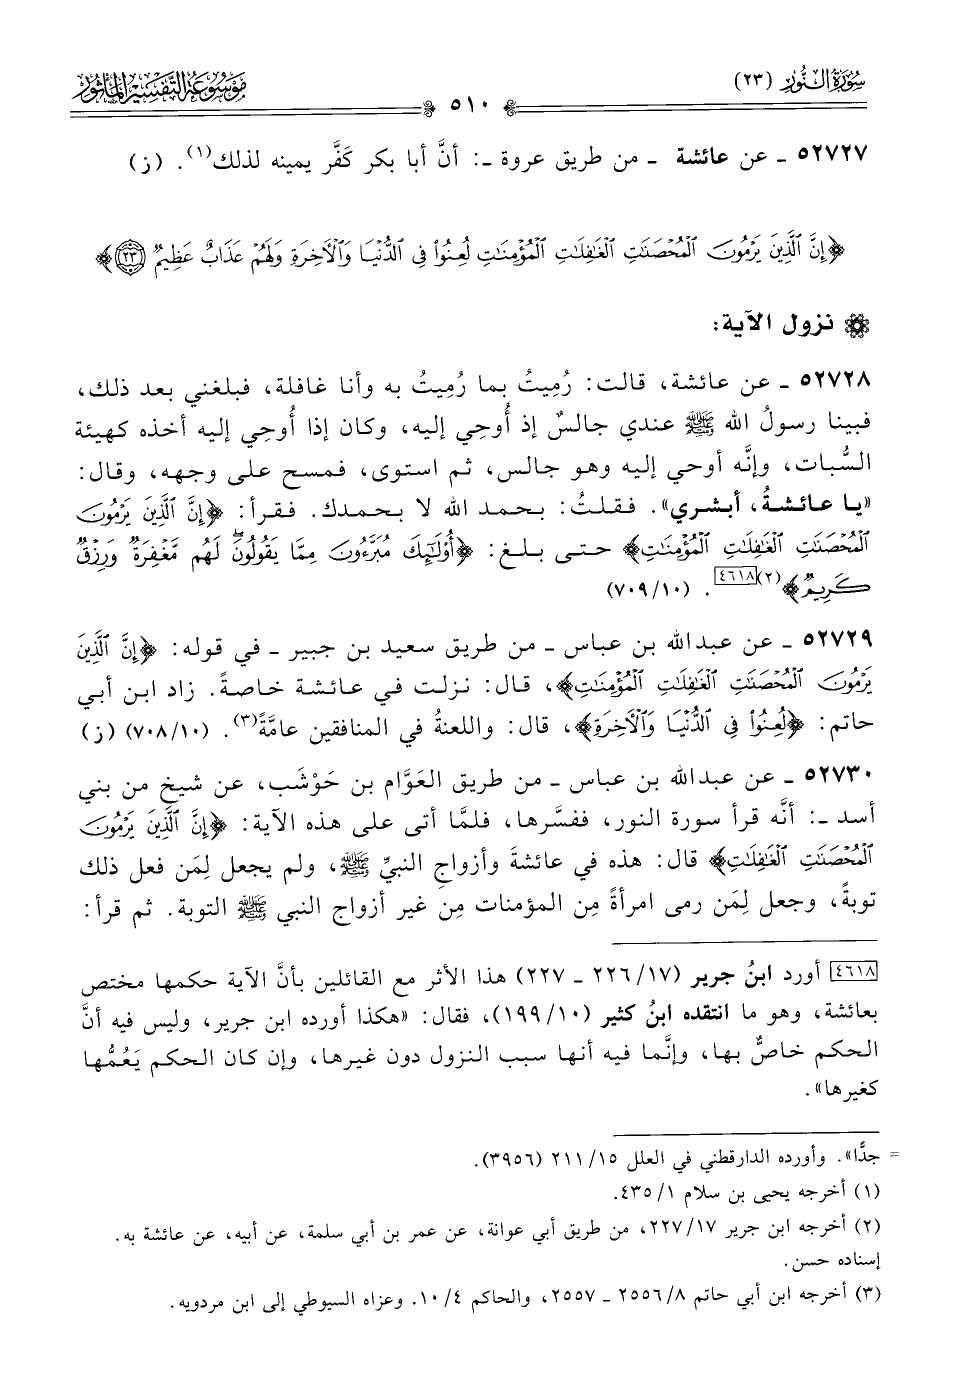 سورة النور (٢٣)
٥١٠
موسوعة التفسير المأثور
٥٢٧٢٧ - عن عائشة - من طريق عروة -: أنَّ أبا بكر كَفَّر يمينه لذلك(١). (ز)
﴿إِنَّ ٱلَّذِينَ يَرْمُونَ ٱلْمُحْصَنَٰتِ ٱلْغَٰفِلَٰتِ ٱلْمُؤْمِنَٰتِ لُعِنُوا۟ فِى ٱلدُّنْيَا وَٱلْأَخِرَةِ وَلَهُمْ عَذَابٌ عَظِيمٌ ٢٣﴾
نزول الآية:
٥٢٧٢٨ - عن عائشة، قالت: رُمِيتُ بما رُمِيتُ به وأنا غافلة، فبلغني بعد ذلك،
فبينا رسولُ الله ﷺ عندي جالسٌ إذ أُوحِي إليه، وكان إذا أُوحِي إليه أخذه كهيئة
السُّبات، وإنَّه أوحي إليه وهو جالس، ثم استوى، فمسح على وجهه، وقال:
«يا عائشةُ، أبشري». فقلتُ: بحمد الله لا بحمدك. فقرأ: ﴿إِنَّ ٱلَّذِينَ يَرْمُونَ
ٱلْمُحْصَنَٰتِ ٱلْغَٰفِلَٰتِ ٱلْمُؤْمِنَٰتِ﴾ حتى بلغ: ﴿أُو۟لَٰٓئِكَ مُبَرَّءُونَ مِمَّا يَقُولُونَ ۖ لَهُم مَّغْفِرَةٌ وَرِزْقٌ
كَرِيمٌ﴾(٢)[٤٦١٨]. (١٠/ ٧٠٩)
٥٢٧٢٩ - عن عبدالله بن عباس - من طريق سعيد بن جبير - في قوله: ﴿إِنَّ ٱلَّذِينَ
يَرْمُونَ ٱلْمُحْصَنَٰتِ ٱلْغَٰفِلَٰتِ ٱلْمُؤْمِنَٰتِ﴾، قال: نزلت في عائشة خاصةً. زاد ابن أبي
حاتم: ﴿لُعِنُوا۟ فِى ٱلدُّنْيَا وَٱلْأَخِرَةِ﴾، قال: واللعنةُ في المنافقين عامَّةً(٣). (١٠/ ٧٠٨) (ز)
٥٢٧٣٠ - عن عبدالله بن عباس - من طريق العَوَّام بن حَوْشَب، عن شيخ من بني
أسد -: أنَّه قرأ سورة النور، ففسَّرها، فلمَّا أتى على هذه الآية: ﴿إِنَّ ٱلَّذِينَ يَرْمُونَ
ٱلْمُحْصَنَٰتِ ٱلْغَٰفِلَٰتِ﴾ قال: هذه في عائشةَ وأزواجِ النبيِّ ﷺ، ولم يجعل لِمَن فعل ذلك
توبةً، وجعل لِمَن رمى امرأةً مِن المؤمنات مِن غير أزواج النبي ﷺ التوبة. ثم قرأ:
[٤٦١٨] أورد ابنُ جرير (١٧/ ٢٢٦ - ٢٢٧) هذا الأثر مع القائلين بأنَّ الآية حكمها مختص
بعائشة، وهو ما انتقده ابنُ كثير (١٠/ ١٩٩)، فقال: «هكذا أورده ابن جرير، وليس فيه أنَّ
الحكم خاصٌّ بها، وإنَّما فيه أنها سبب النزول دون غيرها، وإن كان الحكم يَعُمُّها
كغيرها».
= جدًّا». وأورده الدارقطني في العلل ١٥/ ٢١١ (٣٩٥٦).
(١) أخرجه يحيى بن سلام ١/ ٤٣٥.
(٢) أخرجه ابن جرير ١٧/ ٢٢٧، من طريق أبي عوانة، عن عمر بن أبي سلمة، عن أبيه، عن عائشة به.
إسناده حسن.
(٣) أخرجه ابن أبي حاتم ٨/ ٢٥٥٦ - ٢٥٥٧، والحاكم ٤/ ١٠. وعزاه السيوطي إلى ابن مردويه.